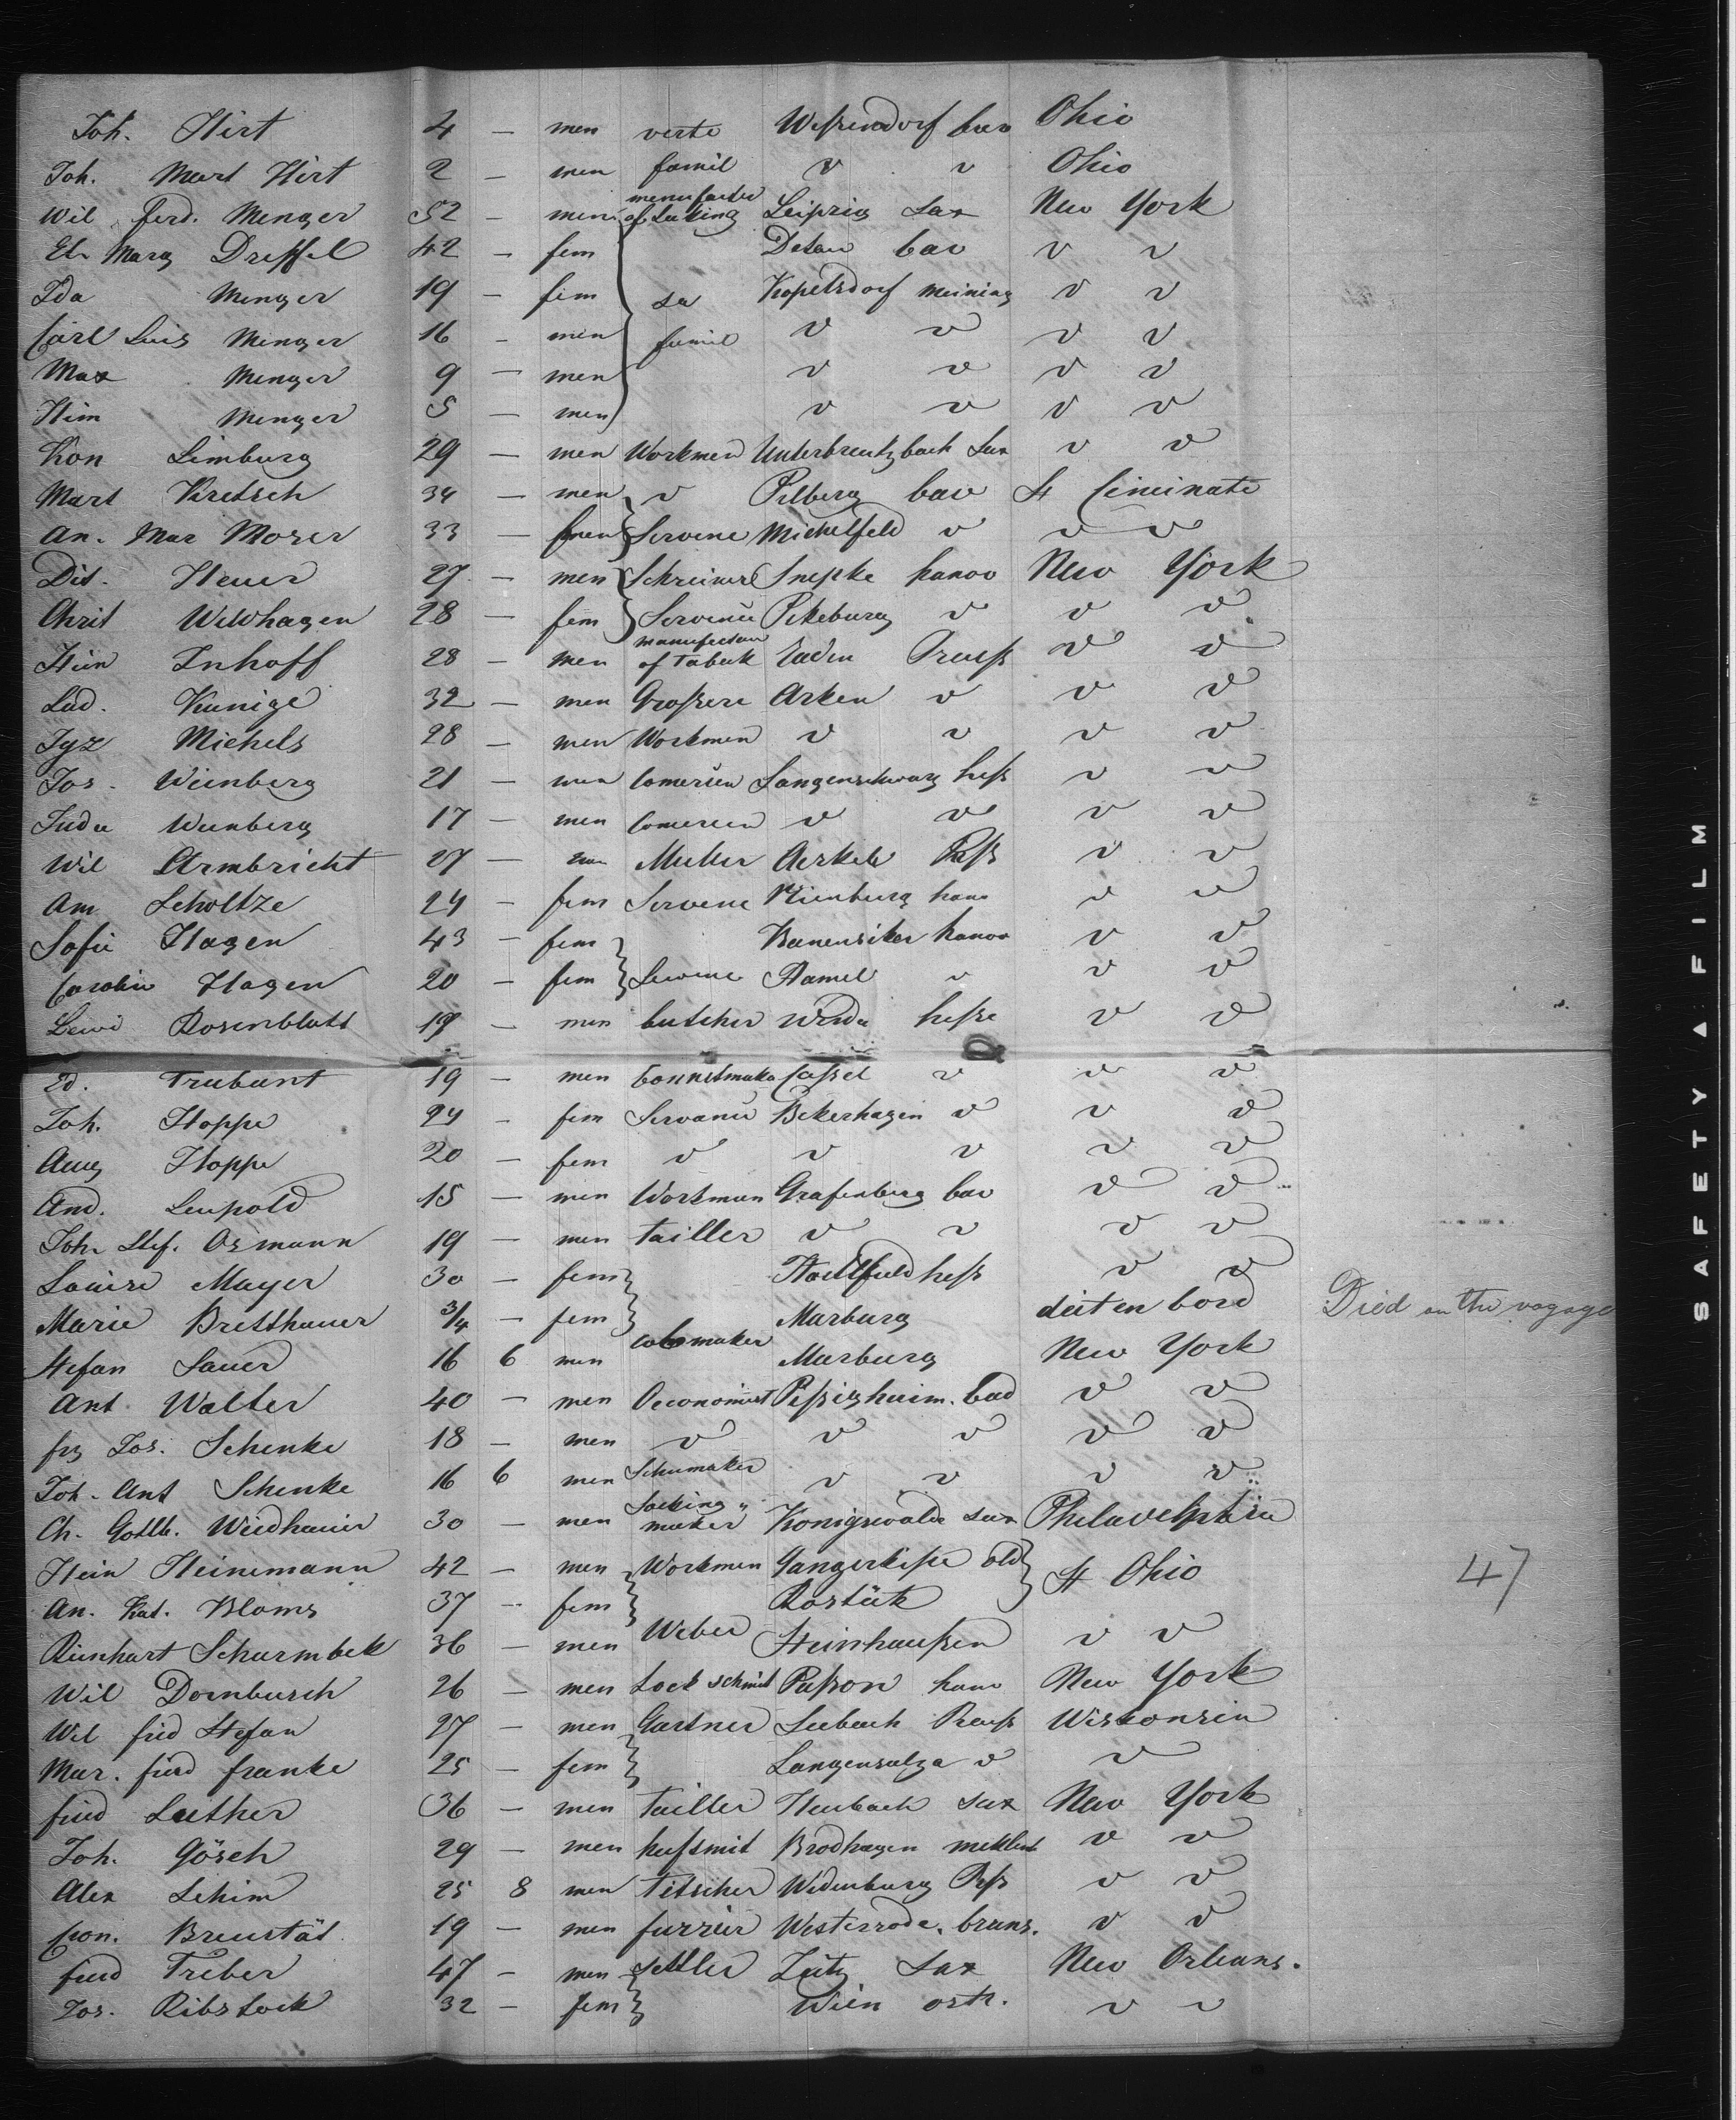 Joh. Hirt 4 — men verte Weßendorf bav Ohio
Joh. Mart Hirt 2 — men famil v v Ohio
Wil Ferd. Menger 52 — men of Leipzig Sax New York
El Marg Dreßel 42 — fem bav v v
Ida Menger 19 — fem sa Kopelsdorf Meining v v
Carl Luis Menger 16 — men famil v v v v
Max Menger 9 — men v v v v
Hein Menger 5 — men v v v v
Kon Limburg 29 — men Workmen Unterbreutzbach Sax v v
Mart Kretsch 34 — men v Pilberg bav St Cincinate
An. Mar Moser 33 — fmen Servene Michelfeld v v v
Dit. Heuer 27 — men Schreinere Snepke hanov New York
Chrit Welvhagen 28 — fem Servenii Pikeburg v v v
Hein Inhoff 28 — men manufectur of Taback Preuß v v
Lud. Kunige 32 — men Großere Arken v v v
Michels 28 — men Workmen v v v v
Jos. Weinberg 21 — men Comersien Langenschwarz heß v v
Juda Weinberg 17 — men Comersien v v v v
Wil Armbricht 27 — men Muller v v
Am Scholtze 24 — fem Servene Nienburg hano v v
Sofie Hagen 43 — fem hanov v v
Carolin Hagen 20 — fem Servene Hamel v v v
Lewi Rosenblatt 19 — men butcher Werda heße v v
Ed. Trubant 19 — men bonnetmaka Caßel v v v
Joh. Hoppe 24 — fem Servanii Bekerhagen v v v
Aug Hoppe 20 — fem v v v v v
And. Leupold 15 — men Workmen Grafenberg bav v v
Joh. Stef. Osmann 19 — men tailler v v v v
Louise Mayer 30 — fem heß v v
Marie Bretthauer 3/4 — fem Marburg deit en bord Died on the vogage
Stefan Sauer 16 6 men maker Marburg New York
Ant Walter 40 — men Oeconomist Peßigheim. bad v v
frz Jos. Schenke 18 — men v v v v v
Joh. Ant Schenke 16 6 men Schumaker v v v v
Ch. Gottlb. Weidhauer 30 — men Socking maker Konigswalde Sax Philavelphia
Hein Heinemann 42 — men Workmen old St Ohio 47
An. Kat. Bloms 37 — fem Rostük
Reinhart Schurmbek 36 — men Weber Steinhaußen v v
Wil Dornbusch 26 — men Lock schmit Paßon hano New York
Wil fried Stefan 27 — men Gartner Seebach Preuß Wiskonsin
Mar. fried franke 25 — fem Langensalza v v
fried Luther 36 — men Tailler Heubach Sax New York
Joh. Gösch 29 — men hufsmit Brodhagen meklenb v v
Alex Schim 25 8 men Titscher Widenburg Prß v v
Con. Breustät 19 — men furrier Westerrode. brans. v v
fried Treber 47 — men settler Zeitz Sax New Orleans.
Jos. Ribstock 32 — fem Wien ostr. v v
SAFETY ▲ FILM